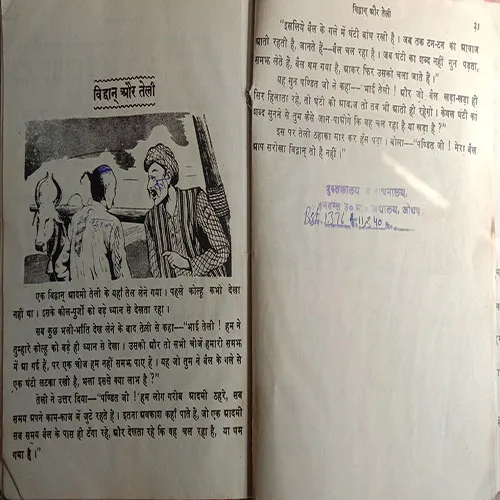 विद्वान् और तेली
एक विद्वान् आदमी तेली के यहाँ तेल लेने गया। पहले कोल्हू कभी देखा
नहीं था। इसके कील-पुर्जों को बड़े ध्यान से देखता रहा।
सब कुछ भली-भाँति देख लेने के बाद तेली से कहा—"भाई तेली ! हम ने
तुम्हारे कोल्हू को बड़े ही ध्यान से देखा। उसकी और तो सभी चीजें हमारी समझ
में आ गई हैं, पर एक चीज हम नहीं समझ पाए हैं। यह जो तुम ने बैल के गले से
एक घंटी लटका रखी है, भला इससे क्या लाभ है ?"
तेली ने उत्तर दिया—"पण्डित जी ! हम लोग गरीब आदमी ठहरे, सब
समय अपने काम-काज में जुटे रहते हैं। इतना अवकाश कहाँ पाते हैं, जो एक आदमी
सब समय बैल के पास ही टँगा रहे, और देखता रहे कि वह चल रहा है, या थम
गया है।"
विद्वान् और तेली
२३
"इसलिये बैल के गले में घंटी बांध रखी है। जब तक टन-टन का आवाज
आती रहती है, जानते हैं—बैल चल रहा है। जब घंटी का शब्द नहीं सुन पड़ता,
समझ लेते हैं, बैल थम गया है, आकर फिर उसको चला जाते हैं।"
यह सुन पण्डित जी ने कहा—"भाई तेली ! और जो बैल खड़ा-खड़ा ही
सिर हिलाता रहे, तो घंटी की आवाज तो तब भी आती ही रहेगी। केवल घंटी का
शब्द सुनने से तुम कैसे जान पाओगे कि वह चल रहा है या खड़ा है ?"
इस पर तेली ठहाका मार कर हँस पड़ा। बोला—"पण्डित जी ! मेरा बैल
आप सरीखा विद्वान् तो है नहीं।"
पुस्तकालय व वाचनालय,